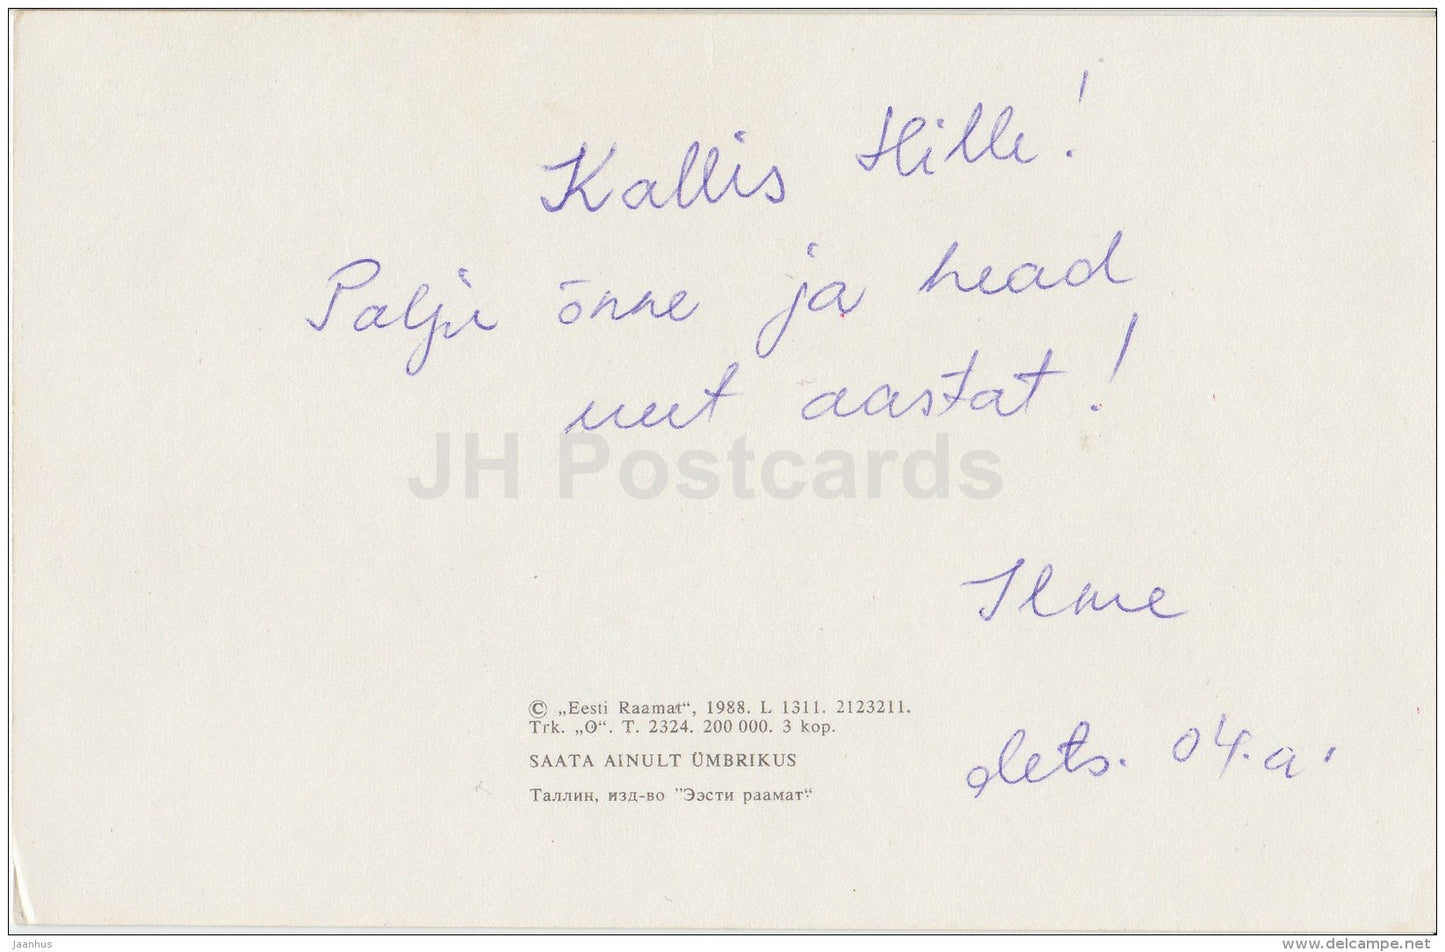 Kallis Hille!
Palju õnne ja head
uut aastat!
JH Postcards
Ilme
dets. 04.a.
© „Eesti Raamat“, 1988. L 1311. 2123211.
Trk. „O“. T. 2324. 200 000. 3 kop.
SAATA AINULT ÜMBRIKUS
Таллин, изд-во "Ээсти раамат“
jaanhus
www.delcampe.net